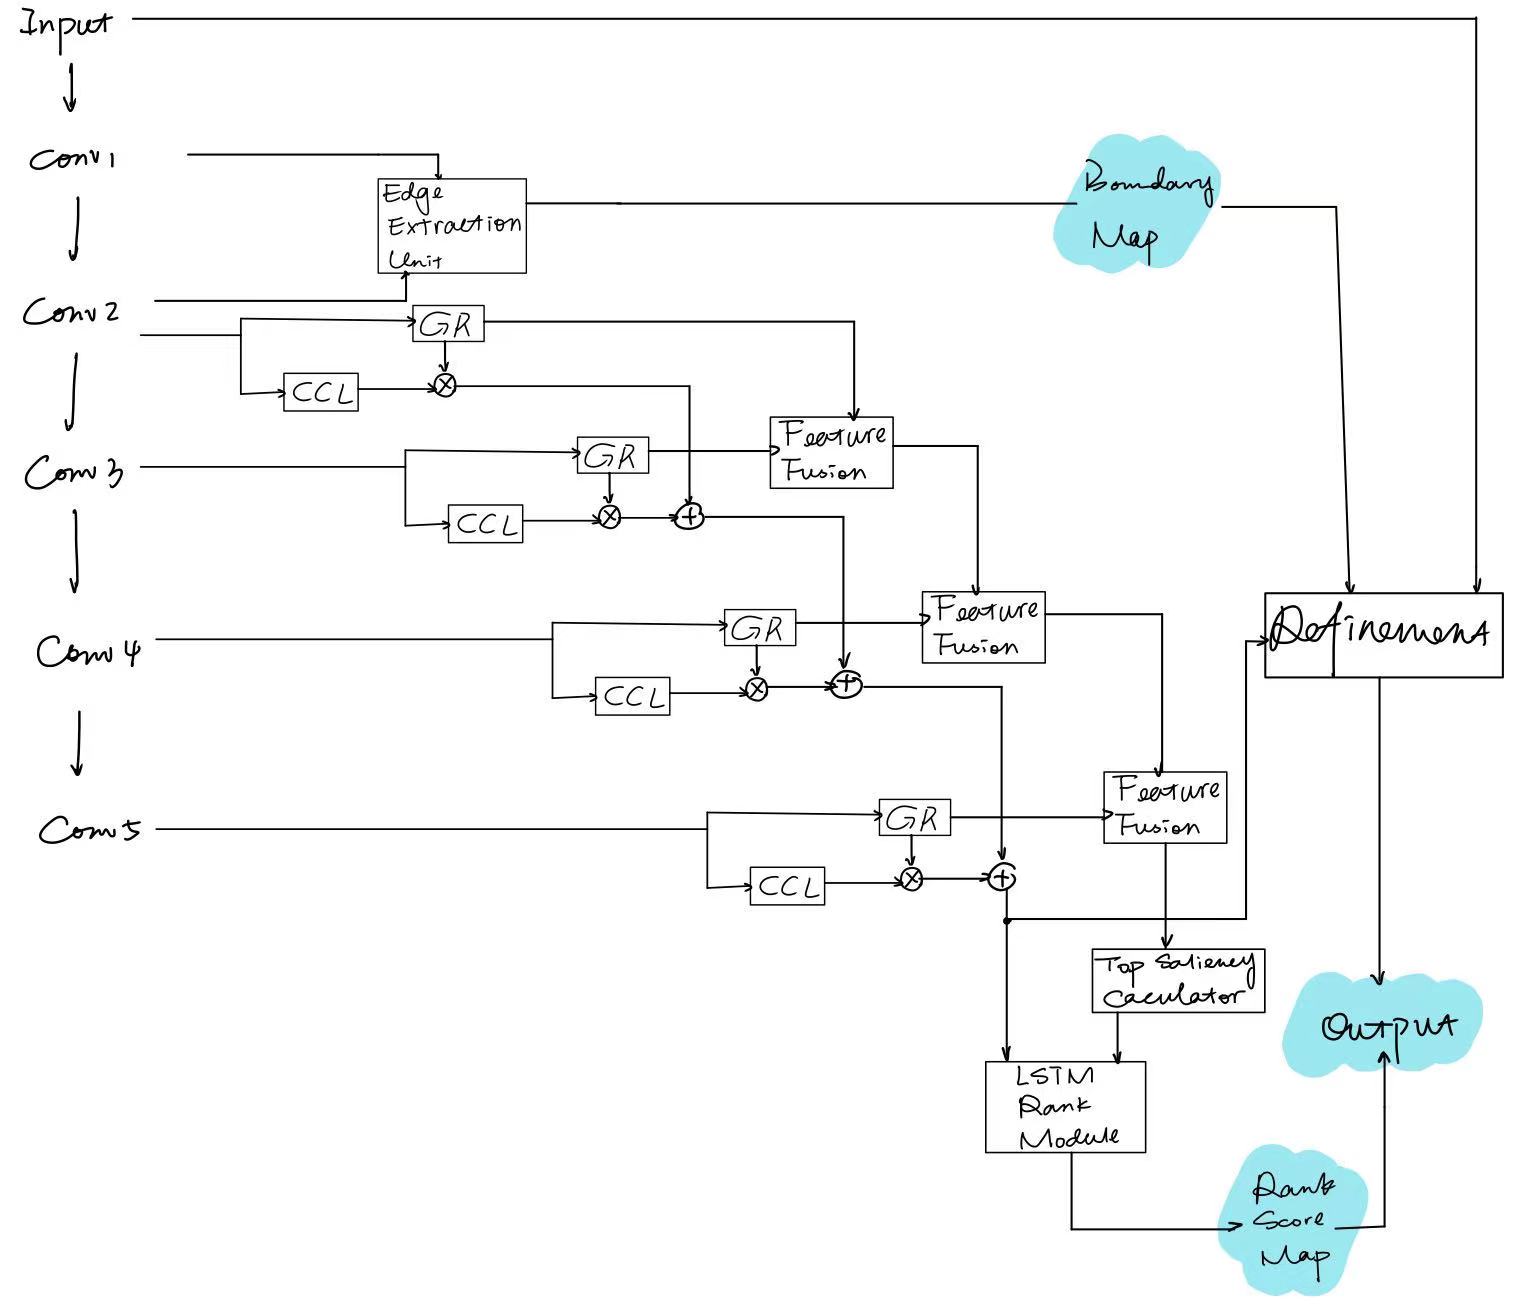 Input
Conv1
Edge
Extraction
Unit
Boundary
Map
Conv2
GR
CCL
⊗
Feature
Fusion
Conv3
GR
CCL
⊗
⊕
Feature
Fusion
Conv4
GR
CCL
⊗
⊕
Refinement
Feature
Fusion
Conv5
GR
CCL
⊗
⊕
Top Saliency
Caculator
Output
LSTM
Rank
Module
Rank
Score
Map